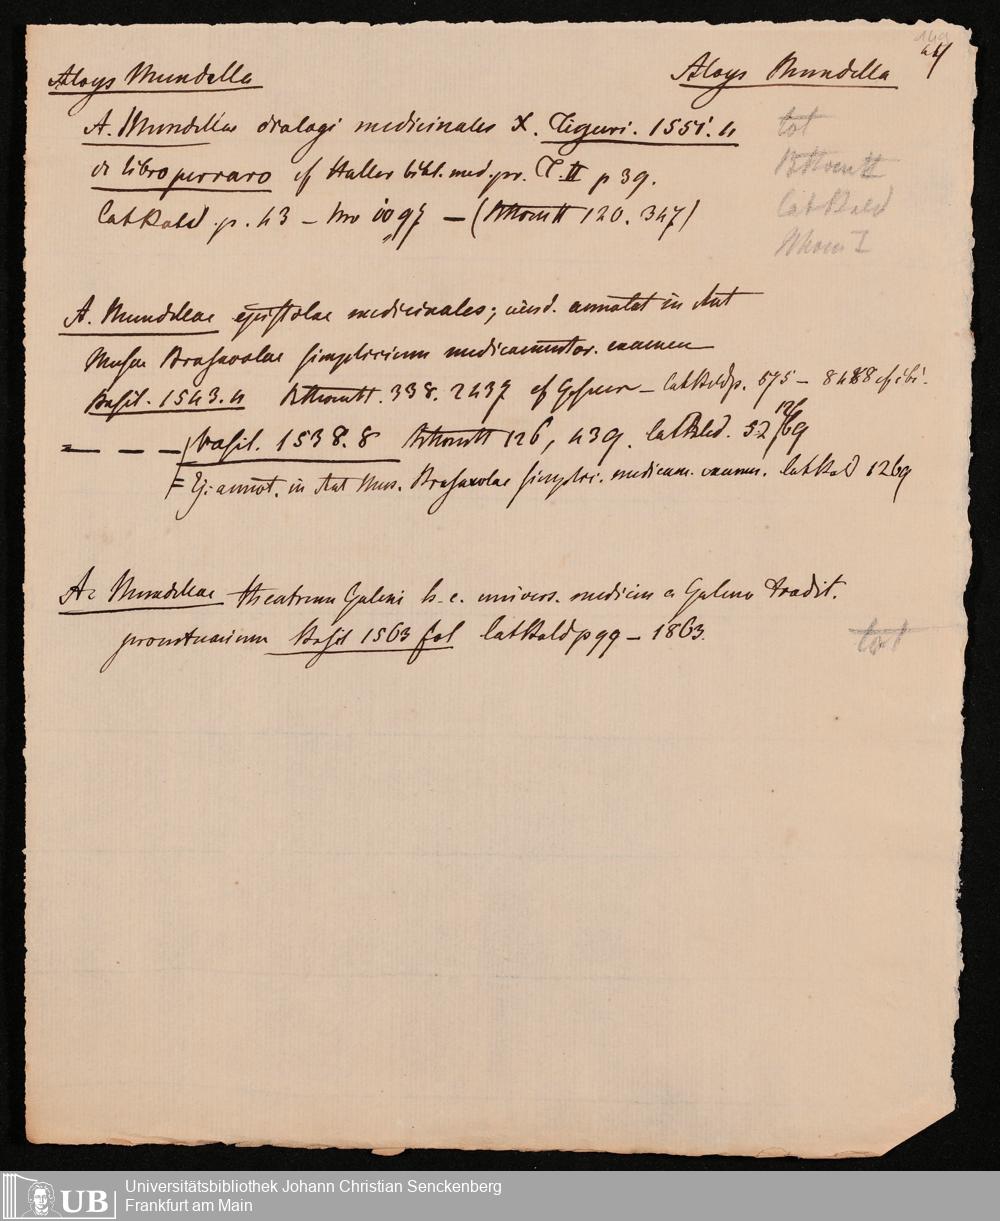 Aloys Mundella
Aloys Mundella
A. Mundellae dialogi medicinales X. Tiguri. 1551. 4
libro perraro cf Haller bibl. med. pr. T. II p 39.
Cat Bald p. 43 – 97 – ( 120. 347)
tot
Cat Bald
A. Mundellae epistolae medicinales; eiusd. annotat in Ant
Musae Brasavolae simplicium medicamentor. examen
Basil. 1543. 4 338. 2437 cf Gesner – Cat Bald p. 575 – cf ibi.
= — — — basil. 1538. 8 126, 439. Cat Bald.
= Ej. annot. in Ant Mus. Brasavolae simplici. medicam. examen. Cat Bald 1269
A. Mundellae theatrum Galeni h. e. univers. medicin a Galeno tradit.
promtuarium Basil 1563 fol Cat Bald p 99 – 1863.
tot
UB
Universitätsbibliothek Johann Christian Senckenberg
Frankfurt am Main